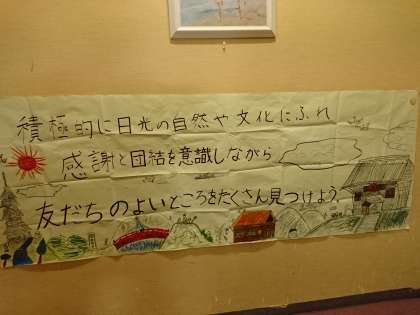 積極的に日光の自然や文化にふれ
感謝と団結を意識しながら
友だちのよいところをたくさん見つけよう